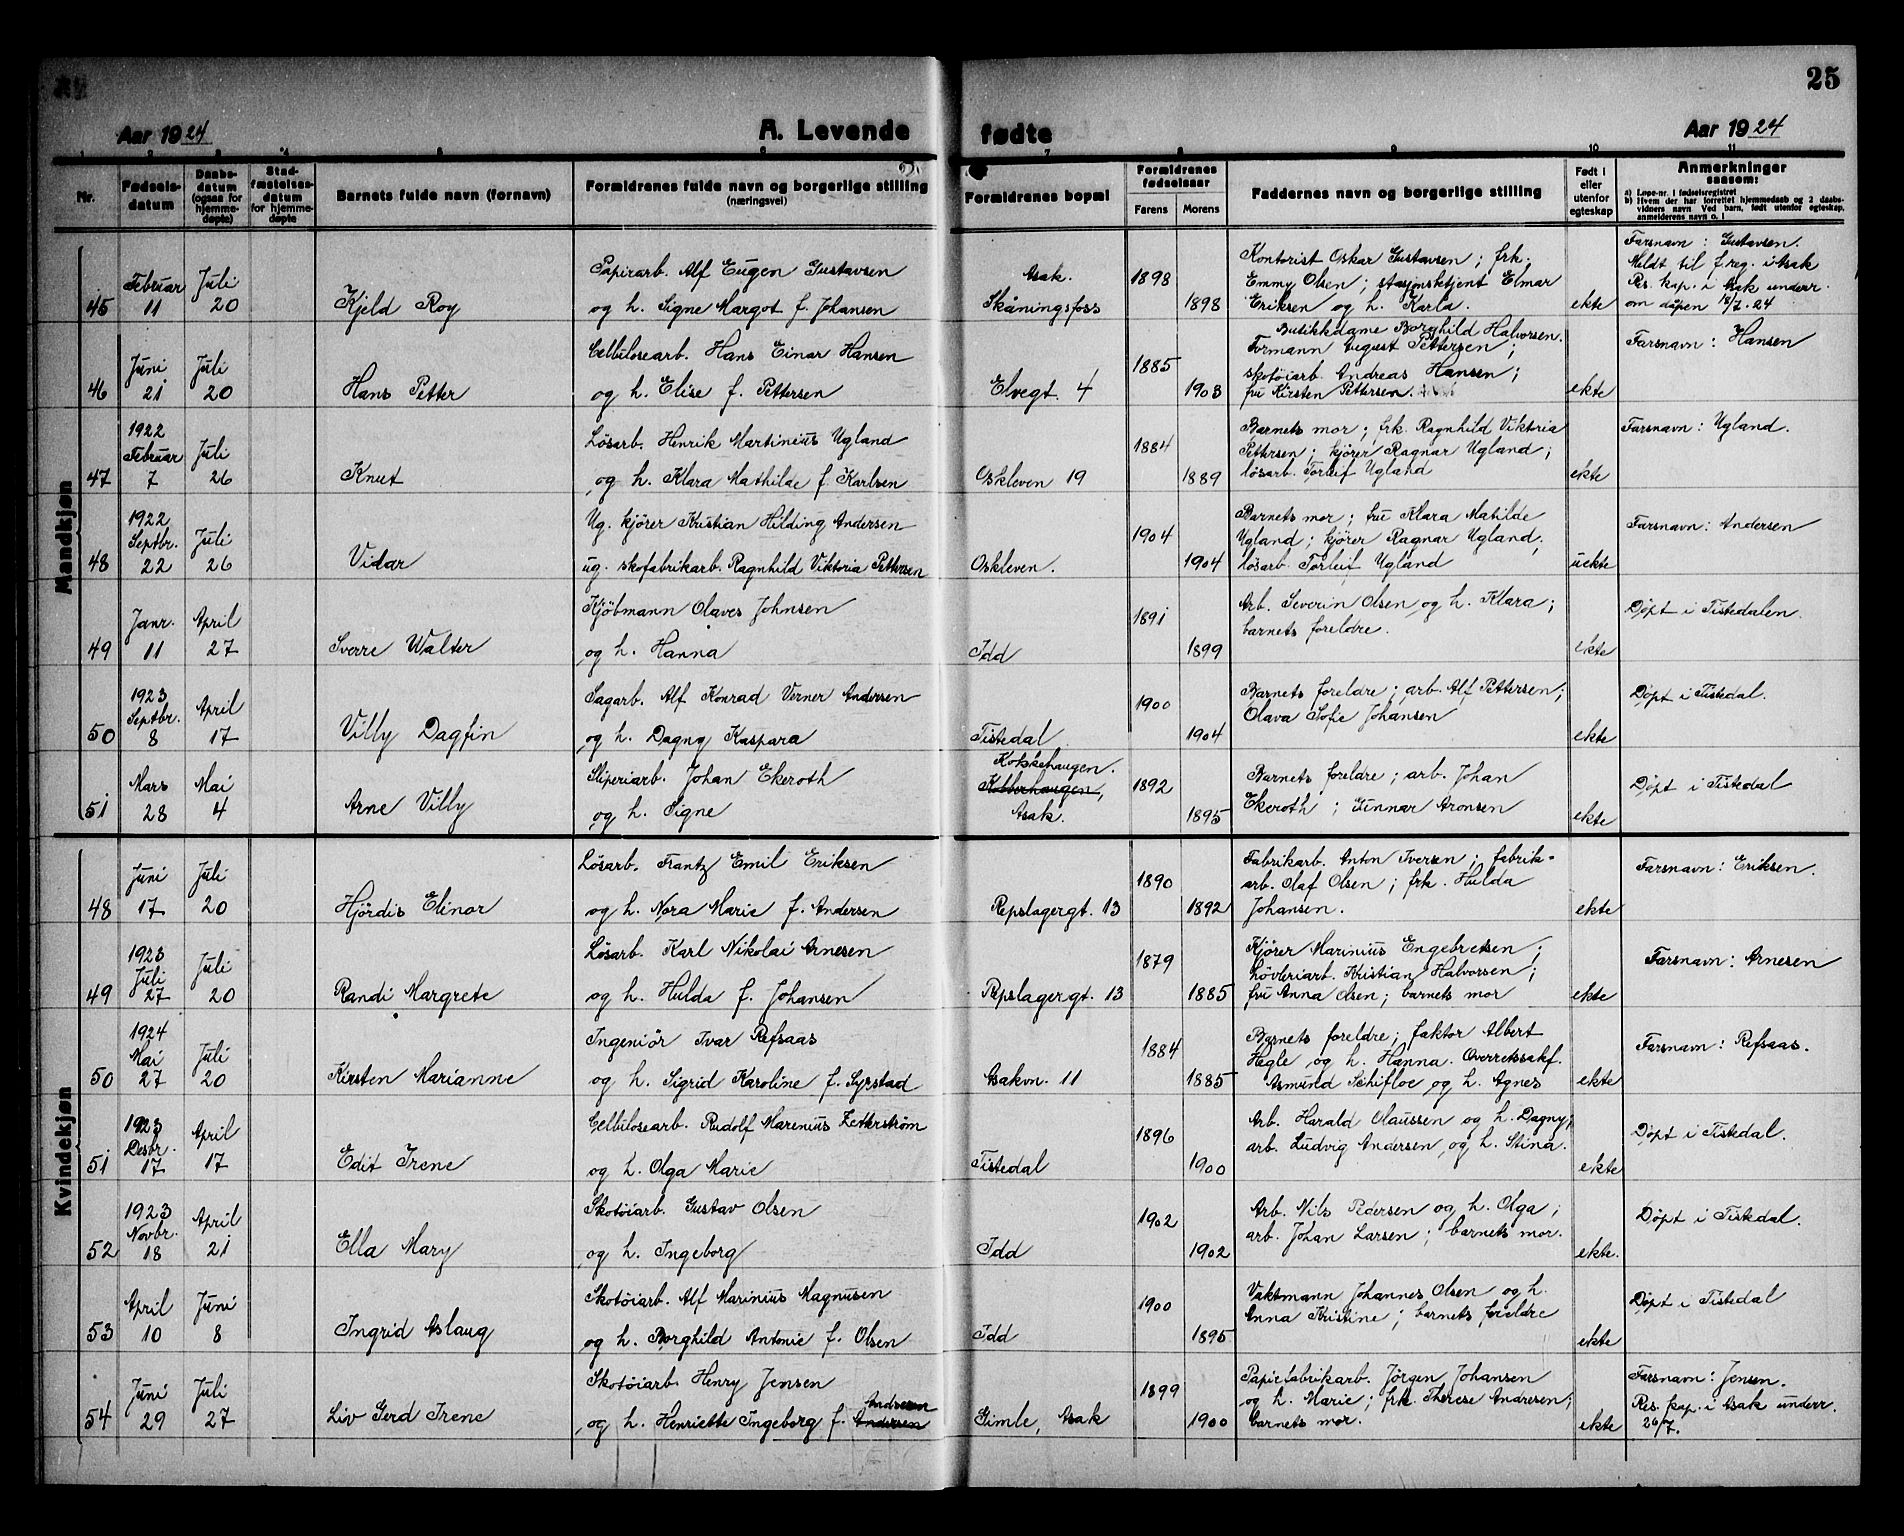 25
Aar 1924
A. Levende
fødte
Aar 1924
Nr.
Fødsels-
datum
Daabs-
datum
(ogsaa for
hjemme-
døpte)
Stad-
fæstelses-
datum
for hjemme-
døpte
Barnets fulde navn (fornavn)
Forældrenes fulde navn og borgerlige stilling
(næringsvei)
Forældrenes bopæl
Forældrenes
fødselsaar
Farens
Morens
Faddernes navn og borgerlige stilling
Født i
eller
utenfor
egteskap
Anmerkninger
saasom:
a) Løpe-nr. i fødselsregistret
b) Hvem der har forrettet hjemmedaab og 2 daabs-
vidners navn Ved barn, født utenfor egteskap,
anmelderens navn o. l
Mandkjøn
45 Februar 11 Juli 20 Kjeld Roy
Papirarb. Alf Eugen Gustavsen
og h. Signe Margot f. Johansen
Asak.
Skåningsfoss
1898 1898
Kontorist Oskar Gustavsen; frk.
Emmy Olsen; stasjonsktjent Elmar
Eriksen og h. Karla.
ekte
Farsnavn: Gustavsen.
Meldt til f.reg. i Asak
Res. kap. i Asak underr.
om dåpen 18/7.24
46 Juni 21 Juli 20 Hans Petter
Cellulosearb. Hans Einar Hansen
og h. Elise f. Pettersen
Elvegt. 4
1885 1903
Butikkdame Borghild Halvorsen.
Formann August Pettersen;
skotøiarb. Andreas Hansen;
fru Kirsten Pettersen.
ekte
Farsnavn: Hansen
47 1922 Februar 7 Juli 26 Knut
Løsarb. Henrik Martinius Ugland
og h. Klara Mathilde f. Karlsen
Oskleven 19
1884 1889
Barnets mor; frk. Ragnhild Viktoria
Pettersen; kjører Ragnar Ugland;
løsarb. Torleif Ugland
ekte
Farsnavn: Ugland.
48 1922 Septbr. 22 Juli 26 Vidar
Ug. kjører Kristian Hilding Andersen
ug. skofabrikarb. Ragnhild Viktoria Pettersen
Oskleven.
1904 1904
Barnets mor; fru Klara Matilde
Ugland; kjører Ragnar Ugland;
løsarb. Torleif Ugland
uekte
Farsnavn: Andersen
49 Janr. 11 April 27 Sverre Walter
Kjøbmann Olaves Johnsen
og h. Hanna
Idd
1891 1899
Arb. Severin Olsen og h. Klara;
barnets foreldre.
ekte
Døpt i Tistedalen.
50 1923 Septbr. 8 April 17 Villy Dagfin
Sagarb. Alf Konrad Verner Andersen
og h. Dagny Kaspara
Tistedal
1900 1904
Barnets foreldre; arb. Alf Pettersen;
Olava Sofie Johansen
ekte
Døpt i Tistedal.
51 Mars 28 Mai 4 Arne Villy
Sliperiarb. Johan Ekeroth
og h. Signe
Kokkehaugen.
Kobberhaugen,
Asak.
1892 1895
Barnets foreldre; arb. Johan
Ekeroth; Gunnar Aronsen
ekte
Døpt i Tistedal
Kvindekjøn
48 Juni 17 Juli 20 Hjördis Elinor
Løsarb. Frantz Emil Eriksen
og h. Nora Marie f. Andersen
Repslagergt. 13
1890 1892
Fabrikarb. Anton Iversen; fabrik-
arb. Olaf Olsen; frk. Hulda
Johansen.
ekte
Farsnavn: Eriksen.
49 1923 Juli 27 Juli 20 Randi Margrete
Løsarb. Karl Nikolai Arnesen
og h. Hulda f. Johansen
Repslagergt. 13
1879 1885
Kjører Marinius Engebretsen;
høvleriarb. Kristian Halvorsen;
fru Anna Olsen; barnets mor
ekte
Farsnavn: Arnesen
50 1924 Mai 27 Juli 20 Kirsten Marianne
Ingeniör Ivar Refsaas
og h. Sigrid Karoline f. Syrstad
Asakvn. 11
1884 1885
Barnets foreldre; faktor Albert
Hegle og h. Hanna. Overretssakf.
Asmund Schifloe og h. Agnes
ekte
Farsnavn: Refsaas.
51 1923 Desbr. 17 April 17 Edit Irene
Cellulosearb. Rudolf Marenius Zetterstrøm
og h. Olga Marie
Tistedal
1896 1900
Arb. Harald Olaussen og h. Dagny;
arb. Ludvig Andersen og h. Stina.
ekte
Døpt i Tistedal.
52 1923 Novbr. 18 April 21 Ella Mary
Skotøiarb. Gustav Olsen
og h. Ingeborg
Idd
1902 1902
Arb. Nils Pedersen og h. Olga;
arb. Johan Larsen; barnets mor.
ekte.
Døpt i Tistedal.
53 April 10 Juni 8 Ingrid Aslaug
Skotøiarb. Alf Marinius Magnusen
og h. Borghild Antonie f. Olsen
Idd
1900 1895
Vaktmann Johannes Olsen og h.
Anna Kristine; barnets foreldre
ekte
Døpt i Tistedal
54 Juni 29 Juli 27 Liv Gerd Irene
Skotøiarb. Henry Jensen
Andresen
og h. Henriette Ingeborg f. Andersen
Gimle, Asak
1899 1900
Papirfabrikarb. Jörgen Johansen
og h. Marie; frk. Therese Andresen;
barnets mor.
ekte
Farsnavn: Jensen.
Res. kap. i Asak underr.
26/7.